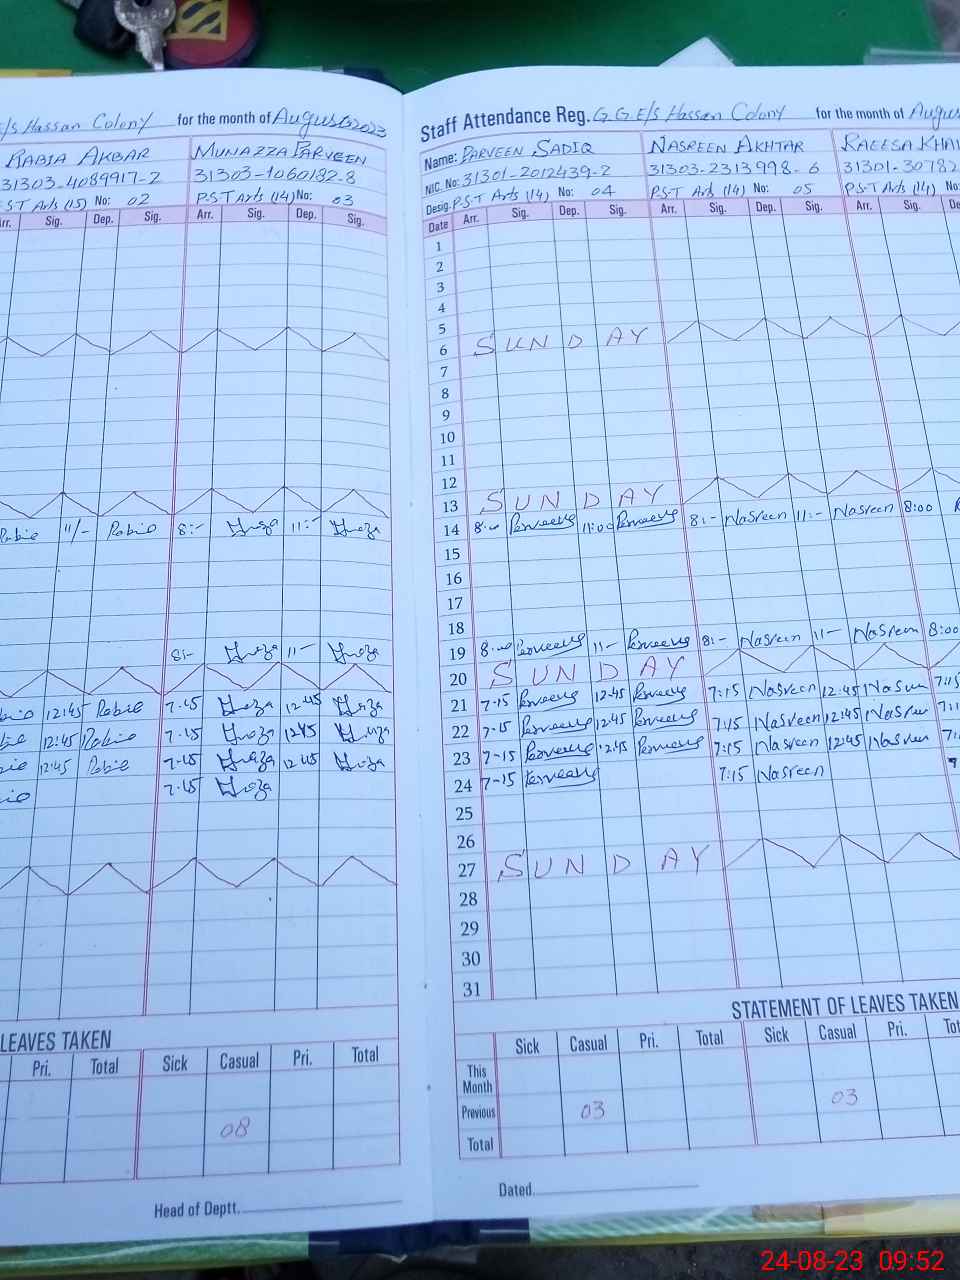 E/S Hassan Colony for the month of August 2023
RABIA AKBAR MUNAZZA PARVEEN
31303-4089917-2 31303-1060182-8
PST Arts (15) No: 02 P.S.T Arts (14) No: 03
Arr. Sig. Dep. Sig. Arr. Sig. Dep. Sig.
Rabia 11/- Rabia 8:- 11:-
8:- 11:-
12:45 Rabia 7-15 12-45
12:45 Rabia 7-15 12:45
12:45 Rabia 7-15 12:45
7-15
LEAVES TAKEN
Pri. Total Sick Casual Pri. Total
08
Head of Deptt.
Staff Attendance Reg. G G E/S Hassan Colony for the month of August
Name: PARVEEN SADIQ NASREEN AKHTAR RAEESA KHAL
NIC. No: 31301-2012439-2 31303-2313998-6 31301-30782
Desig. P.S.T Arts (14) No: 04 P.S.T Arts (14) No: 05 P.S.T Arts (14) No:
Date Arr. Sig. Dep. Sig. Arr. Sig. Dep. Sig. Arr. Sig. De
1
2
3
4
5
6 SUNDAY
7
8
9
10
11
12
13 SUNDAY
14 8:00 Parveen 11:00 Parveen 8:- Nasreen 11:- Nasreen 8:00
15
16
17
18
19 8:00 Parveen 11- Parveen 8:- Nasreen 11- Nasreen 8:00
20 SUNDAY
21 7-15 Parveen 12:45 Parveen 7:15 Nasreen 12:45 Nasreen 7:15
22 7-15 Parveen 12:45 Parveen 7:15 Nasreen 12:45 Nasreen 7:1
23 7-15 Parveen 12:45 Parveen 7:15 Nasreen 12:45 Nasreen 7:
24 7-15 Parveen 7:15 Nasreen
25
26
27 SUNDAY
28
29
30
31
STATEMENT OF LEAVES TAKEN
Sick Casual Pri. Total Sick Casual Pri. Tot
This Month
Previous 03 03
Total
Dated.
24-08-23 09:52